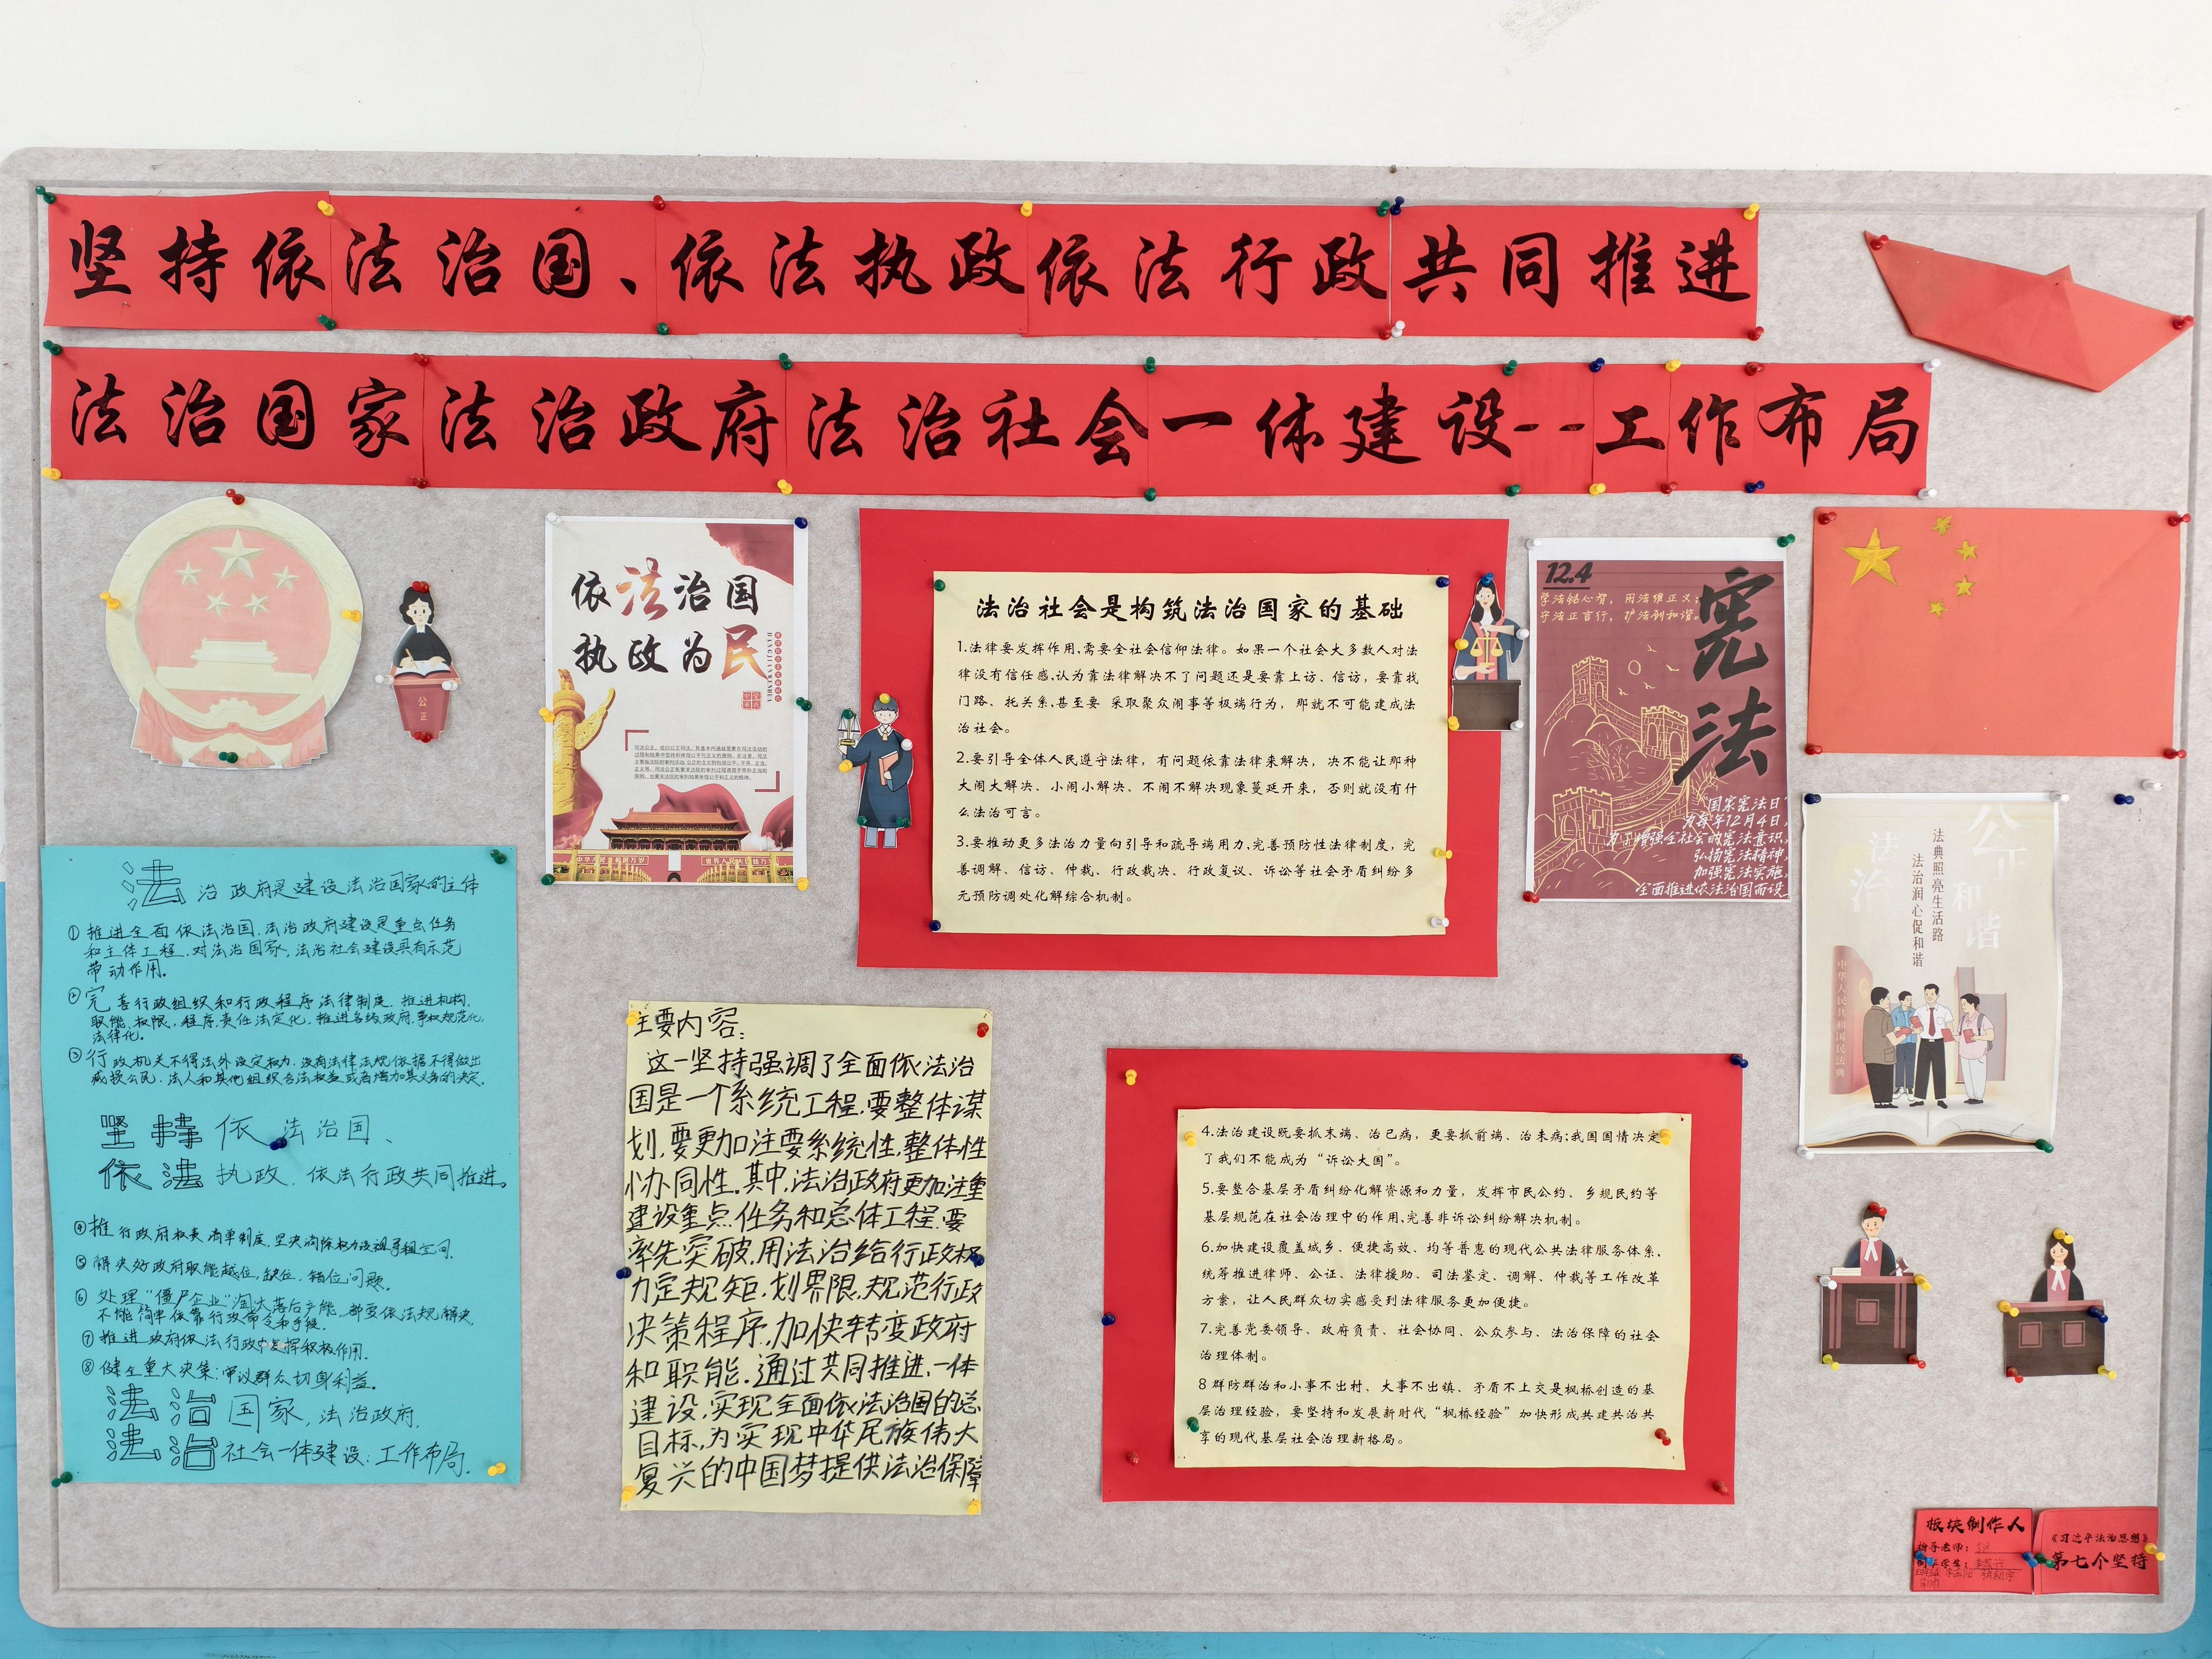 坚持依法治国、依法执政依法行政共同推进
法治国家法治政府法治社会一体建设--工作布局
公正
依法治国
执政为民
法治社会是构筑法治国家的基础
1.法律要发挥作用,需要全社会信仰法律。如果一个社会大多数人对法
律没有信任感,认为靠法律解决不了问题还是要靠上访、信访,要靠找
门路、托关系,甚至要 采取聚众闹事等极端行为,那就不可能建成法
治社会。
2.要引导全体人民遵守法律,有问题依靠法律来解决,决不能让那种
大闹大解决、小闹小解决、不闹不解决现象蔓延开来,否则就没有什
么法治可言。
3.要推动更多法治力量向引导和疏导端用力,完善预防性法律制度,完
善调解、信访、仲裁、行政裁决、行政复议、诉讼等社会矛盾纠纷多
元预防调处化解综合机制。
12.4
学法铭心智,用法维正义;
守法正言行,护法创和谐。
宪法
"国家宪法日"
为每年12月4日,
为了增强全社会的宪法意识,
弘扬宪法精神,
加强宪法实施,
全面推进依法治国而设
公正
法治
和谐
法典照亮生活路
法治润心促和谐
中华人民共和国民法典
法治政府是建设法治国家的主体
①推进全面依法治国,法治政府建设是重点任务
和主体工程,对法治国家,法治社会建设具有示范
带动作用。
②完善行政组织和行政程序法律制度,推进机构,
职能,权限,程序,责任法定化,推进各级政府,事权规范化,
法律化。
③行政机关不得法外设定权力,没有法律法规依据不得做出
减损公民,法人和其他组织合法权益或者增加其义务的决定。
坚持依法治国、
依法执政、依法行政共同推进。
④推行政府权责清单制度,坚决消除权力设租寻租空间.
⑤解决好政府职能越位,缺位,错位问题.
⑥处理"僵尸企业"淘汰落后产能,都要依法规解决,
不能简单依靠行政命令和手段.
⑦推进政府依法行政中发挥积极作用.
⑧健全重大决策:审议群众切身利益。
法治国家,法治政府,
法治社会一体建设:工作布局.
主要内容:
这一坚持强调了全面依法治
国是一个系统工程,要整体谋
划,要更加注要系统性,整体性
协同性.其中,法治政府更加注重
建设重点任务和总体工程,要
率先突破,用法治给行政权
力定规矩,划界限,规范行政
决策程序,加快转变政府
和职能.通过共同推进,一体
建设,实现全面依法治国的总
目标,为实现中华民族伟大
复兴的中国梦提供法治保障
4.法治建设既要抓末端、治已病,更要抓前端、治未病;我国国情决定
了我们不能成为“诉讼大国”。
5.要整合基层矛盾纠纷化解资源和力量,发挥市民公约、乡规民约等
基层规范在社会治理中的作用,完善非诉讼纠纷解决机制。
6.加快建设覆盖城乡、便捷高效、均等普惠的现代公共法律服务体系、
统筹推进律师、公证、法律援助、司法鉴定、调解、仲裁等工作改革
方案,让人民群众切实感受到法律服务更加便捷。
7.完善党委领导、政府负责、社会协同、公众参与、法治保障的社会
治理体制。
8 群防群治和小事不出村、大事不出镇、矛盾不上交是枫桥创造的基
层治理经验,要坚持和发展新时代“枫桥经验”加快形成共建共治共
享的现代基层社会治理新格局。
板块制作人
指导老师:
制作学生:
《习近平法治思想》
第七个坚持